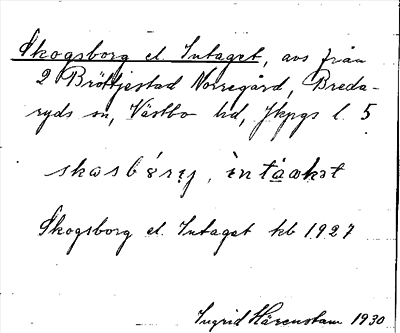 Skogsborg el. Intaget, avs från
2 Bröttjestad Norregård, Breda-
ryds sn, Västbo hd, Jkpgs l. 5
Skogsborg el. Intaget kb 1927
Ingrid Härenstam 1930